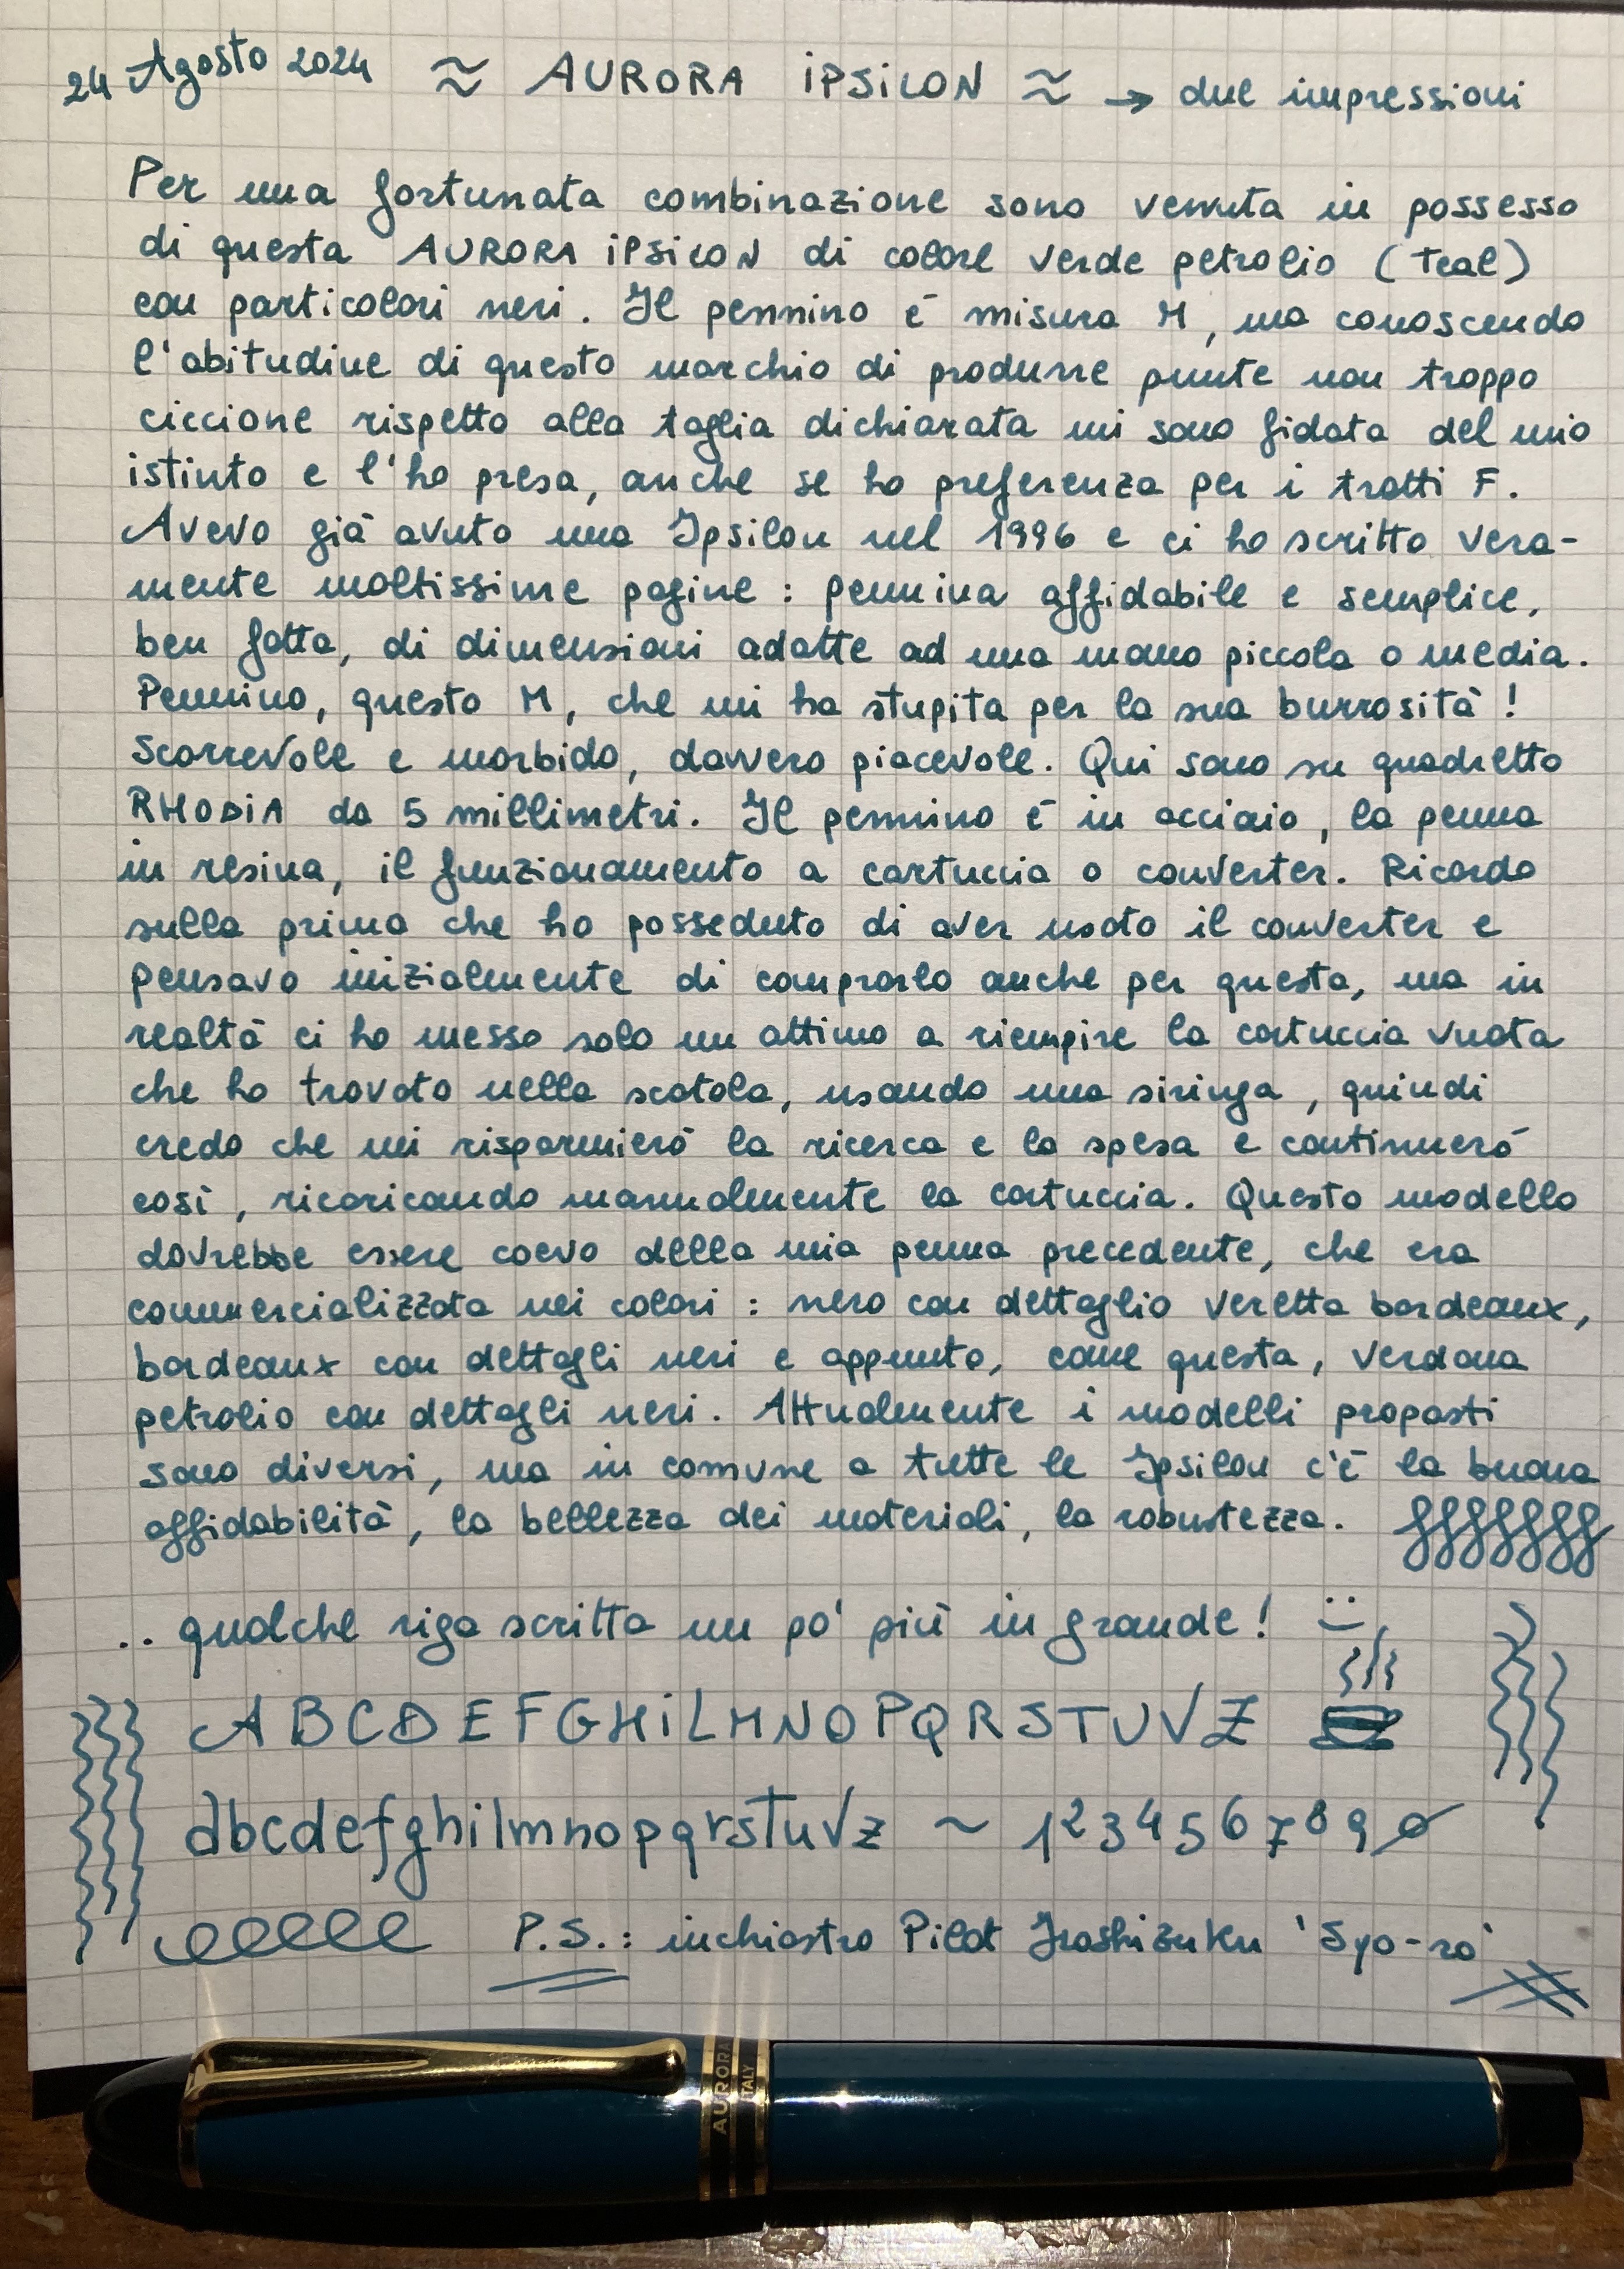 24 Agosto 2024 ≈ AURORA iPSiLON ≈ → due impressioni
Per una fortunata combinazione sono venuta in possesso
di questa AURORA iPSiLON di colore verde petrolio (teal)
con particolari neri. Il pennino è misura M, ma conoscendo
l'abitudine di questo marchio di produrre punte non troppo
ciccione rispetto alla taglia dichiarata mi sono fidata del mio
istinto e l'ho presa, anche se ho preferenza per i tratti F.
Avevo già avuto una Ipsilon nel 1996 e ci ho scritto vera-
mente moltissime pagine : pennina affidabile e semplice,
ben fatta, di dimensioni adatte ad una mano piccola o media.
Pennino, questo M, che mi ha stupita per la sua burrosità !
Scorrevole e morbido, davvero piacevole. Qui sono su quadretto
RHODIA da 5 millimetri. Il pennino è in acciaio, la penna
in resina, il funzionamento a cartuccia o converter. Ricordo
sulla prima che ho posseduto di aver usato il converter e
pensavo inizialmente di comprarlo anche per questa, ma in
realtà ci ho messo solo un attimo a riempire la cartuccia vuota
che ho trovato nella scatola, usando una siringa, quindi
credo che mi risparmierò la ricerca e la spesa e continuerò
così, ricaricando manualmente la cartuccia. Questo modello
dovrebbe essere coevo della mia penna precedente, che era
commercializzata nei colori : nero con dettaglio veretta bordeaux,
bordeaux con dettagli neri e appunto, come questa, verdona
petrolio con dettagli neri. Attualmente i modelli proposti
sono diversi, ma in comune a tutte le Ipsilon c'è la buona
affidabilità, la bellezza dei materiali, la robustezza.
.. qualche riga scritta un po' più in grande !
A B C D E F G H i L M N O P Q R S T U V Z
abcdefghilmnopqrstuvz ~ 1234567890
P.S.: inchiostro Pilot Iroshizuku 'Syo-ro'
AURORA
ITALY